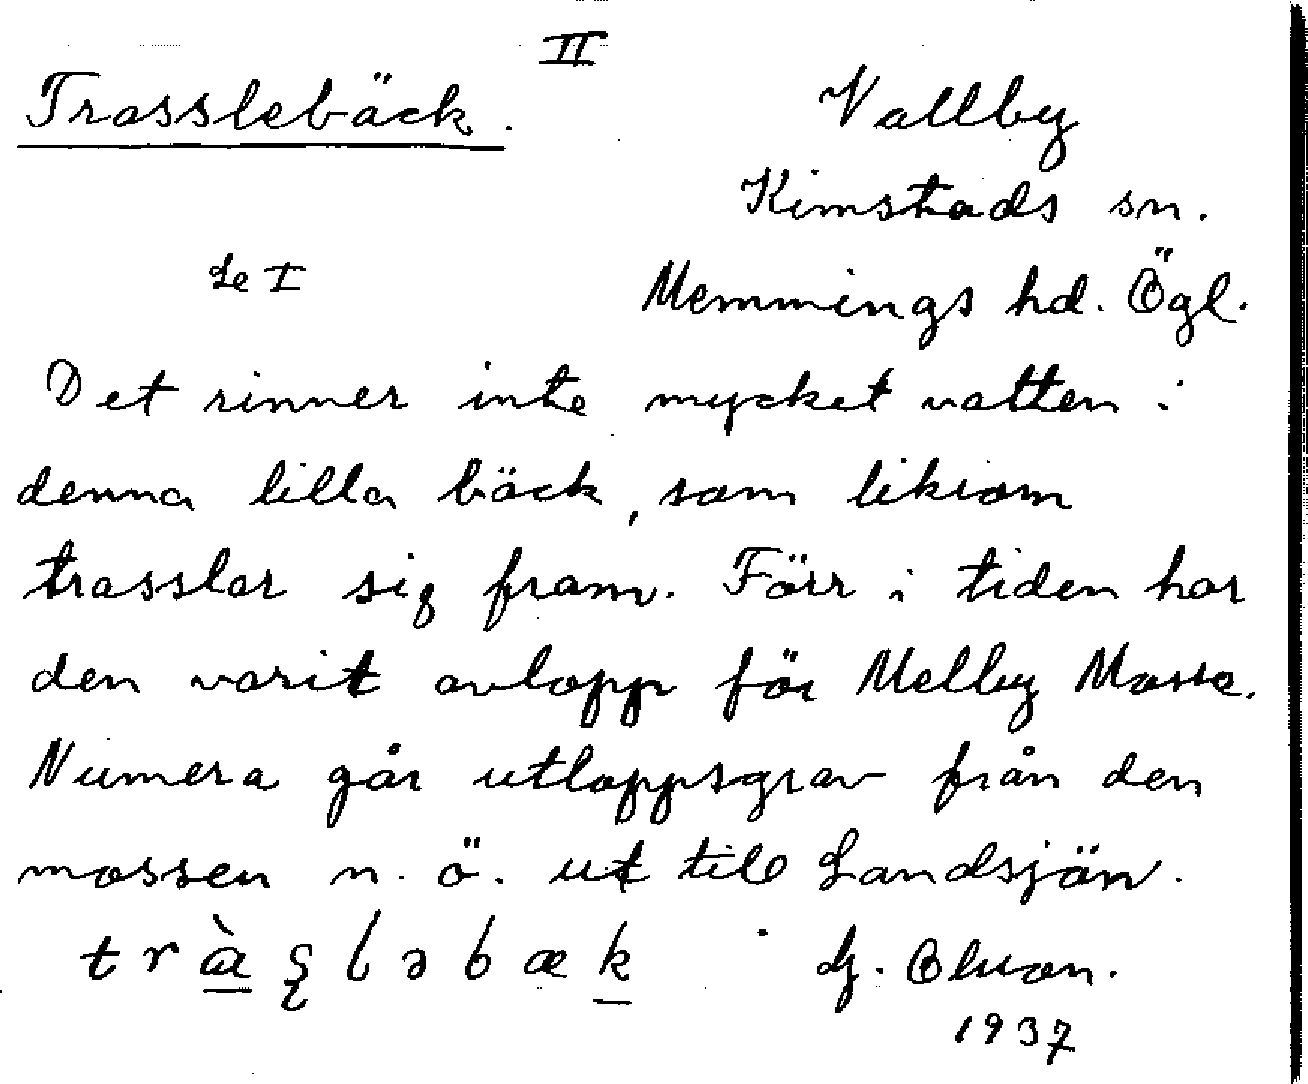 II
Trasslebäck.
Vallby
Kimstads sn.
Se I
Memmings hd. Ögl.
Det rinner inte mycket vatten i
denna lilla bäck, som liksom
trasslar sig fram. Förr i tiden har
den varit avlopp för Melby Mosse.
Numera går utloppsgrav från den
mossen n. ö. ut till Landsjön.
1937